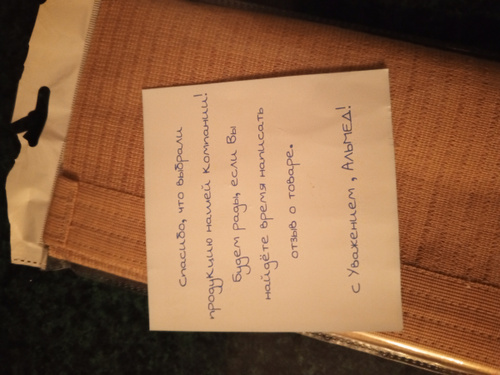 Спасибо, что выбрали
продукцию нашей компании!
Будем рады, если Вы
найдёте время написать
отзыв о товаре.
С Уважением, АльМЕД!